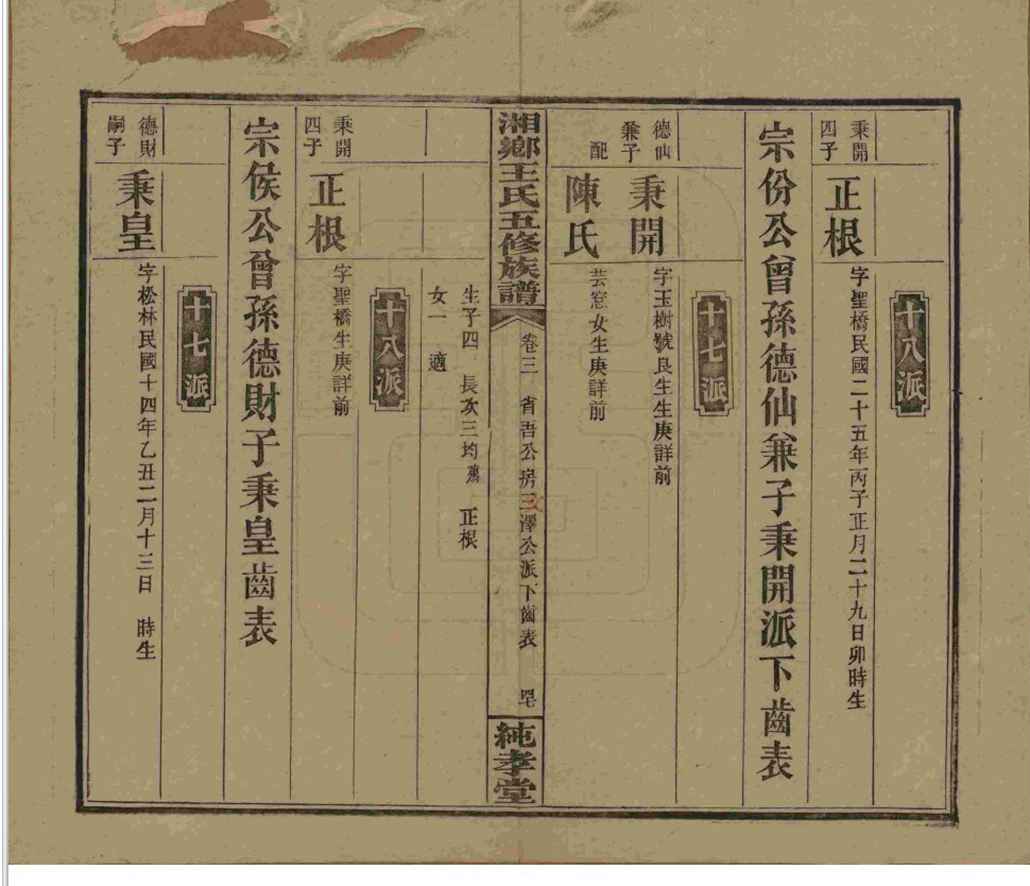 十八派
秉開
四子
正根
字聖橋民國二十五年丙子正月二十九日卯時生
宗份公曾孫德仙兼子秉開派下齒表
十七派
德仙
兼子
秉開
字玉樹號良生生庚詳前
配
陳氏
芸窓女生庚詳前
湘鄉王氏五修族譜
卷三 省吾公房三澤公派下齒表
純孝堂
生子四 長次三均殤 正根
女一 適
十八派
秉開
四子
正根
字聖橋生庚詳前
宗侯公曾孫德財子秉皇齒表
十七派
德財
嗣子
秉皇
字松林民國十四年乙丑二月十三日 時生